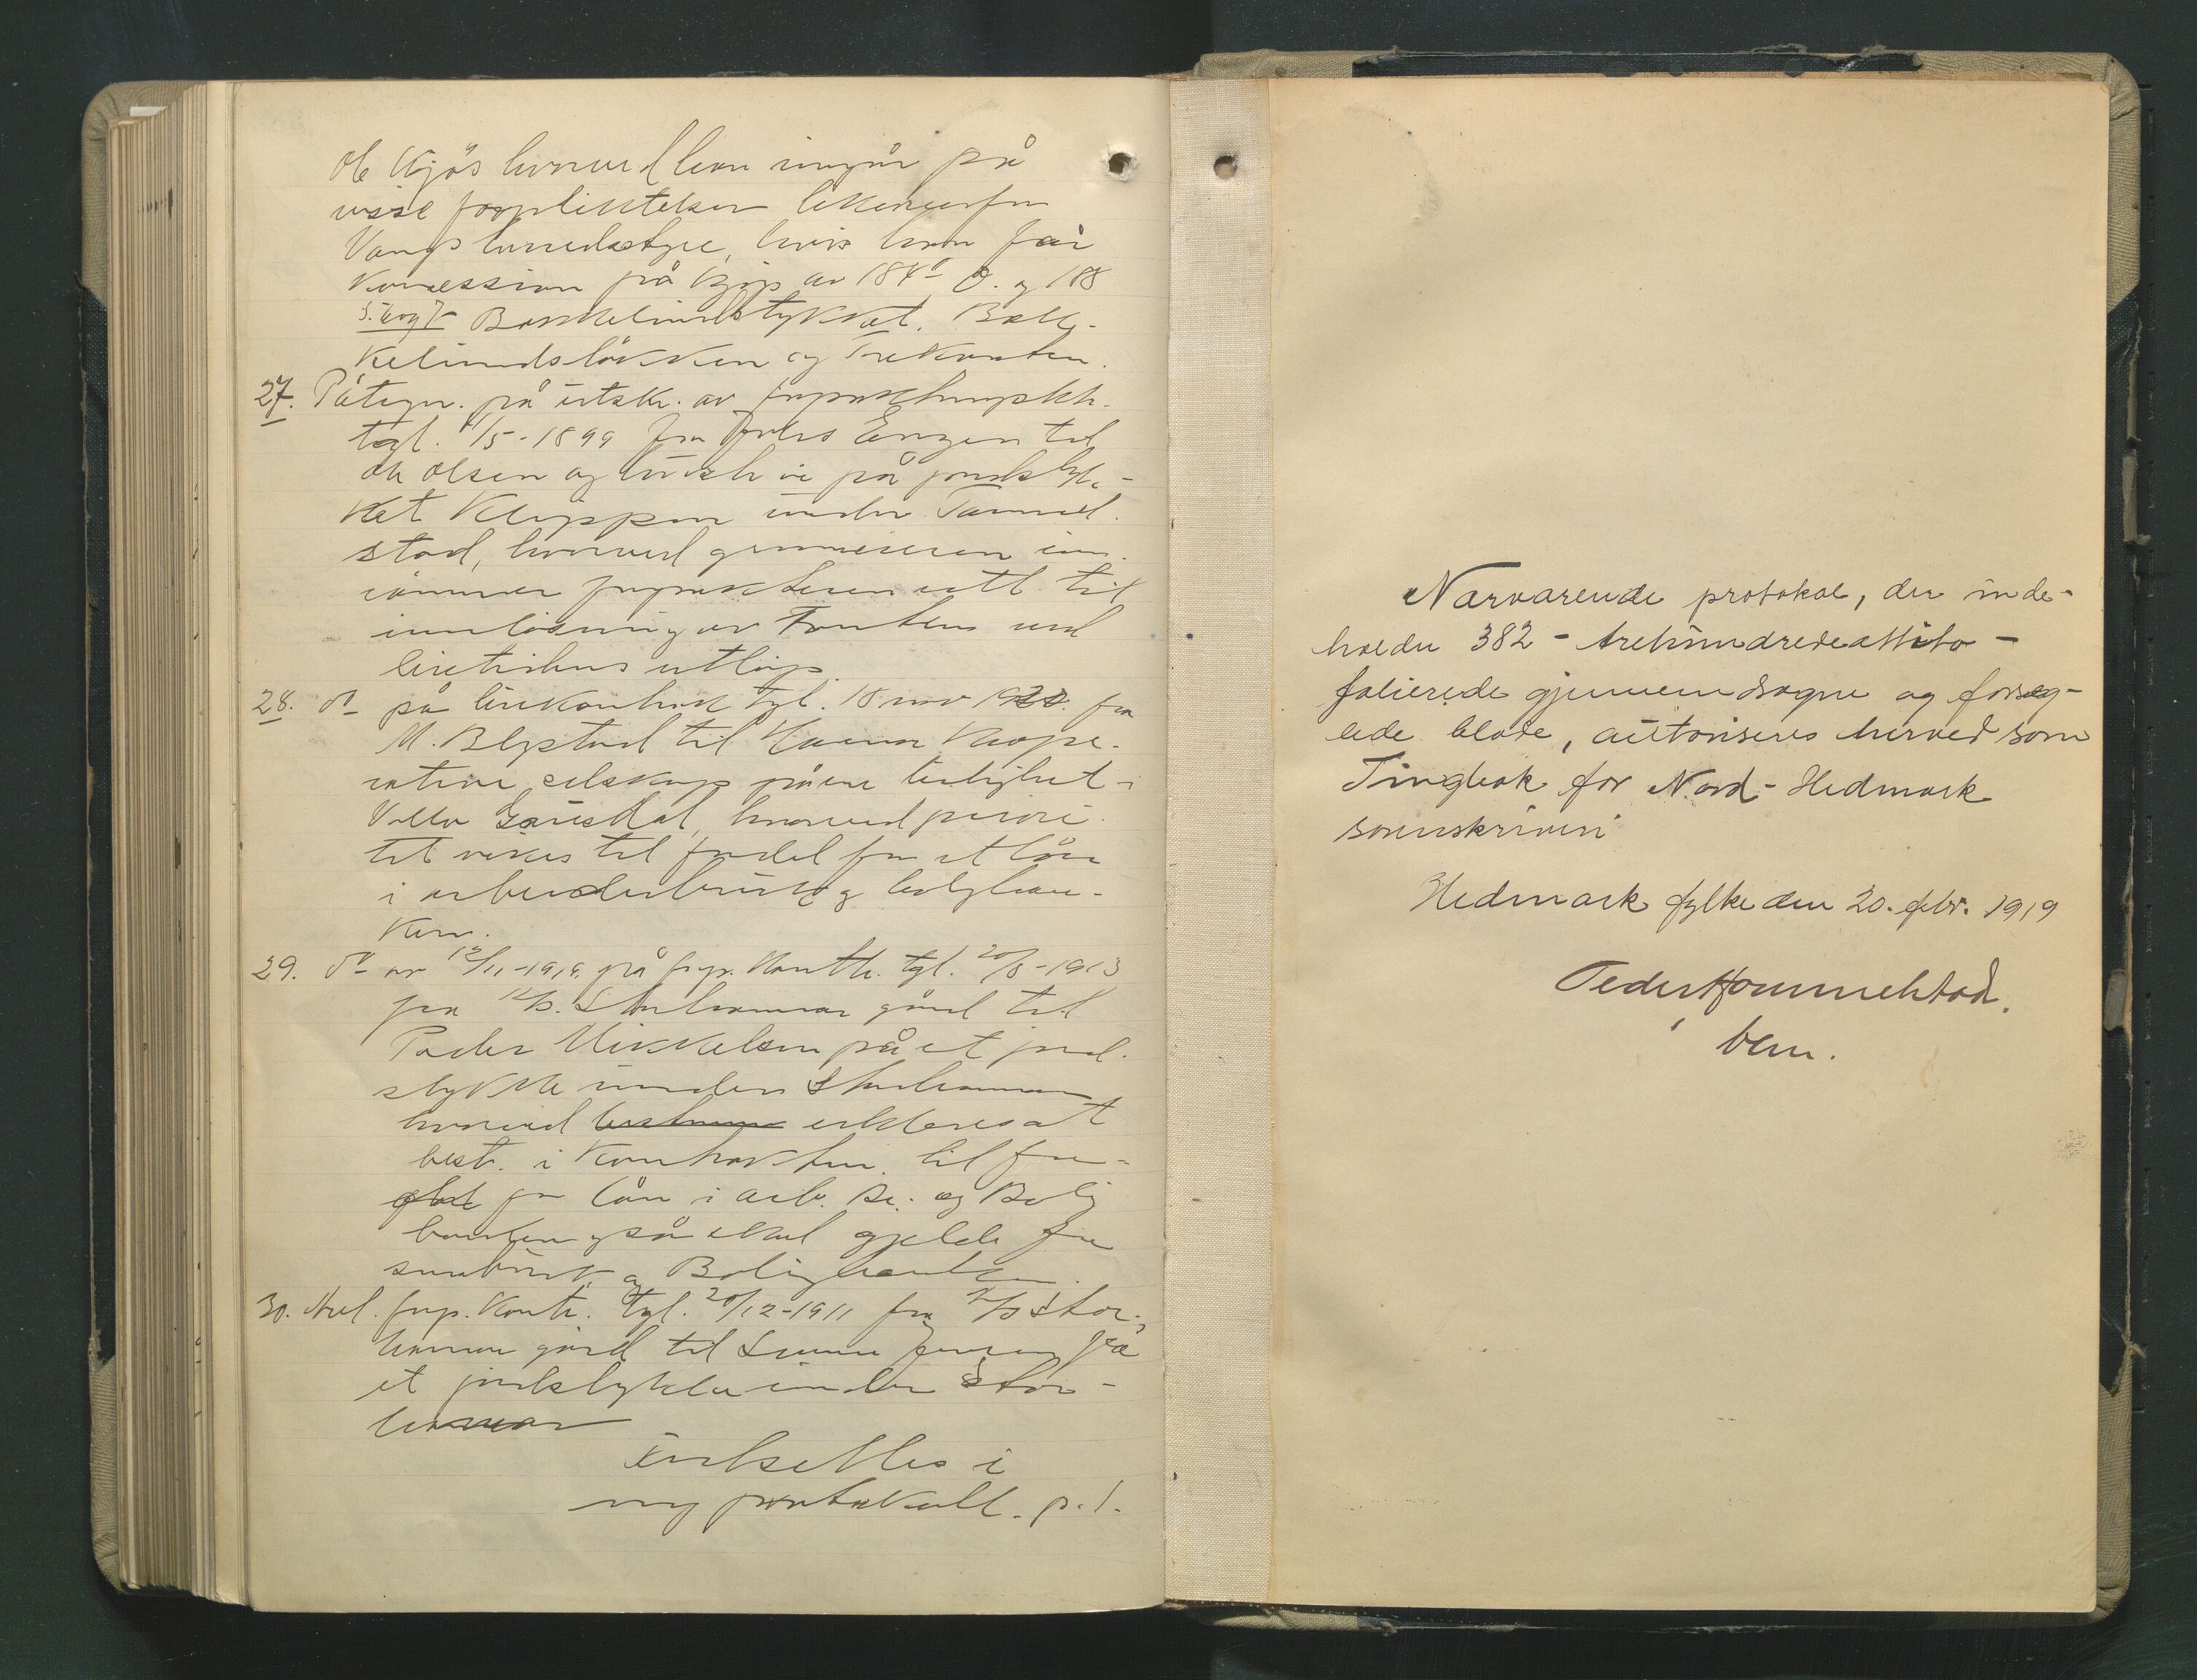 Ole Kjös hvorved han inngår på
visse forpliktelser likeoverfor
Vangs herredstyre, hvis han får
Konsession på kjöp av 184 og 188
Bekkelundstykket. Bekke-
kelundslökken og Trekanten.
27. Påtegn. på utskr. av forpaktningskk.
tgl. 1/5-1899 fra Engen til
Ole Olsen og hustru på jordstyk-
ket Klippen under Tommel-
stad, hvorved grunneieren inn-
römmer forpakteren rett til
innlösning av Tomten ved
leietidens utlöp.
28. do på leiekontrakt tgl. 18 nov 1920 fra
M. Blystad til Hamar Koope-
rative selskap på en leilighet i
Villa hvorved priori-
tet vikes til fordel for et lån
i arbeiderbruk og boligban-
ken.
29. do av 12/11-1919 på frp. Kontr. tgl. 20/8-1913
fra A/S. Storhamar gård til
Peder Mikkelsen på et jord-
stykke under Storhamar
hvorved erklæres at
best. i Kontrakten til for-
del for lån i Arb. Br. og Bolig
banken også skal gjelde for
småbruk og Boligbanken.
30. Avl. frp. Kontr. tgl. 20/12-1911 fra A/S Stor-
hamar gård til Jensen på
et jordstykke under Stor-
hamar
Endsettes i
ny protokoll. p. 1.
Nærværende protokol, der inde-
holder 382 - trehundredeottito -
folierede gjennemdragne og forseg-
lede blade, autoriseres herved som
Tingbok for Nord-Hedmark
sorenskriveri
Hedmark fylke den 20. febr. 1919
Peder Hommelstad.
bem.